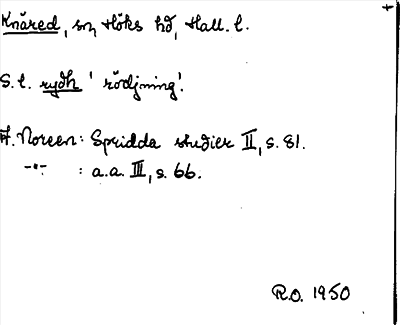 Knäred, sn, Höks hd, Hall. l.
S. l. rydh 'rödjning'.
A. Noreen: Spridda studier II, s. 81.
-"- : a.a. III, s. 66.
R.O. 1950